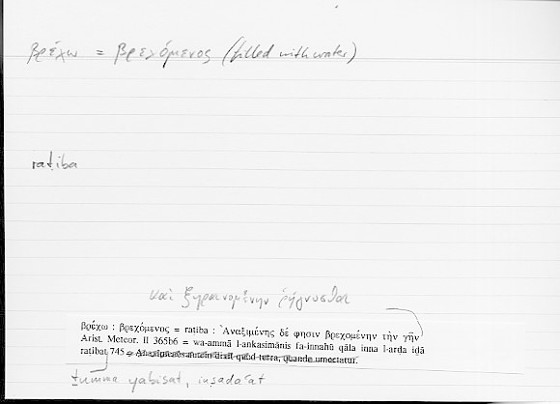 βρέχω = βρεχόμενος (filled with water)
raṭiba
καὶ ξηραινομένην ῥήγνυσθαι
βρέχω : βρεχόμενος = ratiba : Ἀναξιμένης δέ φησιν βρεχομένην τὴν γῆν
Arist. Meteor. II 365b6 = wa-ammā l-ankasimānis fa-innahū qāla inna l-arḍa iḏā
ratibat 745 = quod terra, quando umectatur.
ṯumma yabisat, inṣadaʿat